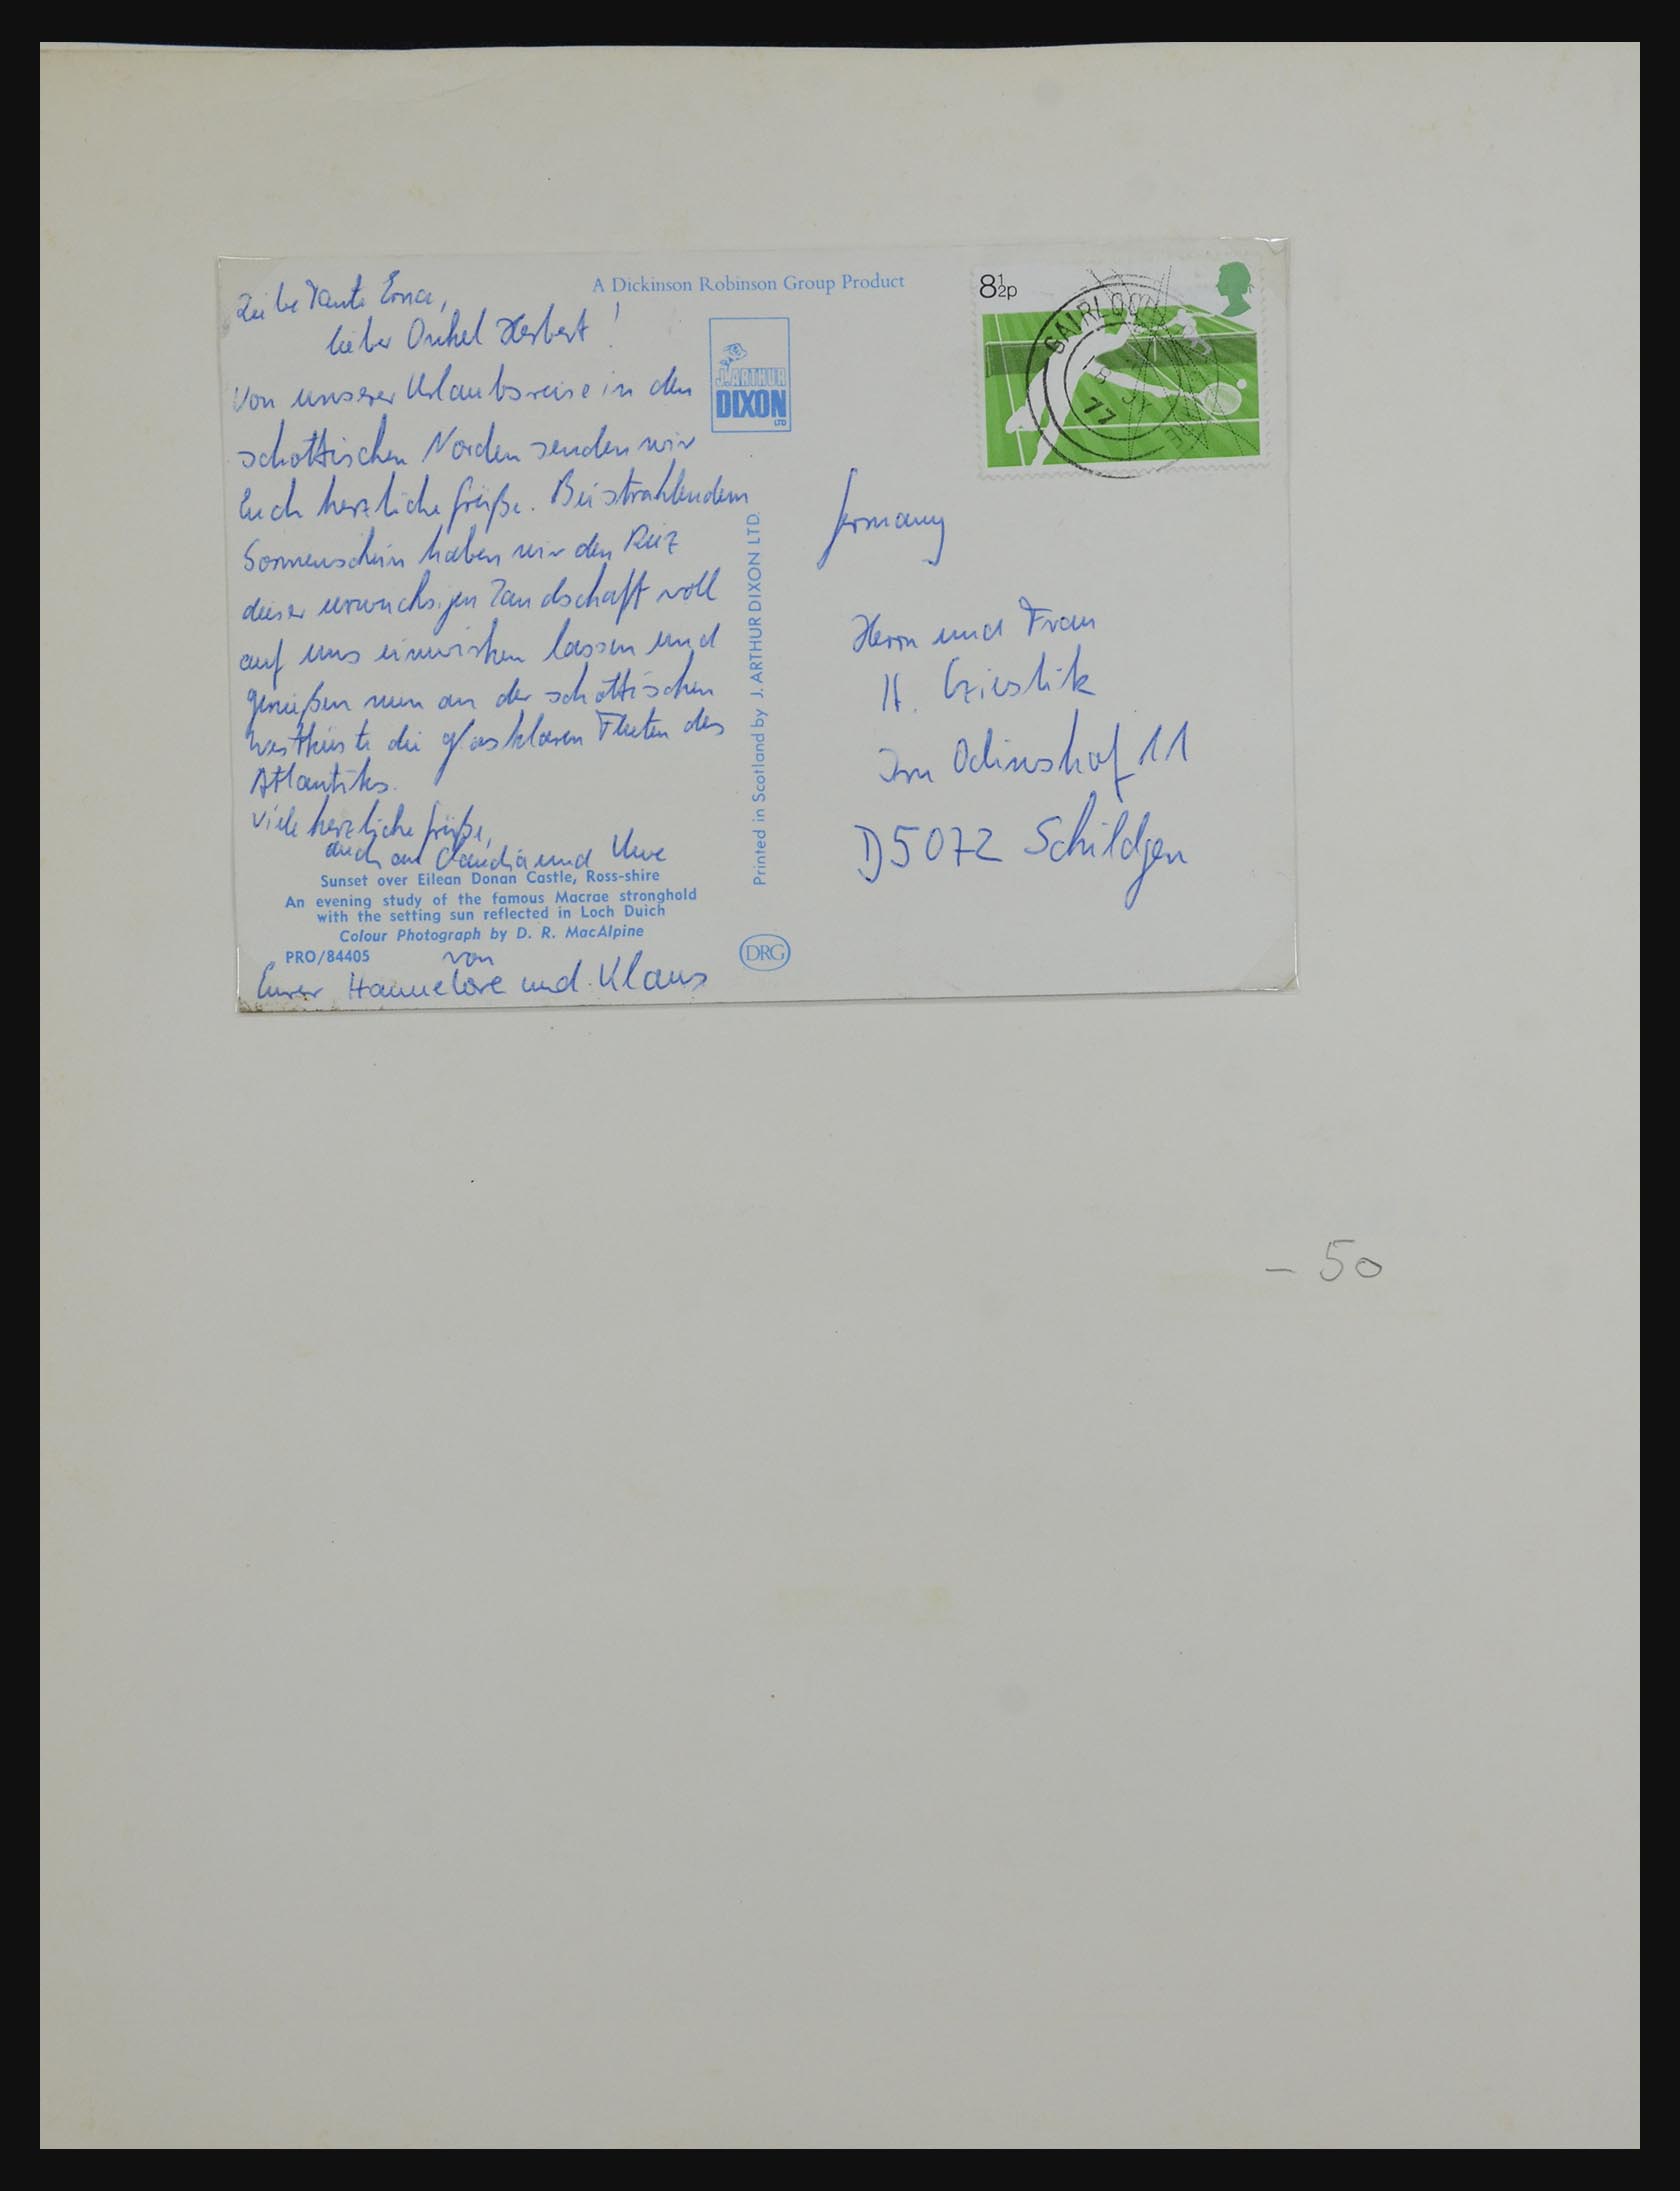 Liebe Tante Erna,
lieber Onkel Herbert!
Von unserer Urlaubsreise in den
schottischen Norden senden wir
Euch herzliche Grüße. Bei strahlendem
Sonnenschein haben wir den Reiz
dieser urwüchsigen Landschaft voll
auf uns einwirken lassen und
genießen nun an der schottischen
Westküste die glasklaren Fluten des
Atlantiks.
Viele herzliche Grüße,
auch an Claudia und Uwe
Sunset over Eilean Donan Castle, Ross-shire
An evening study of the famous Macrae stronghold
with the setting sun reflected in Loch Duich
Colour Photograph by D. R. MacAlpine
PRO/84405
von
Eurer Hannelore und Klaus
A Dickinson Robinson Group Product
J. ARTHUR
DIXON
LTD
Printed in Scotland by J. ARTHUR DIXON LTD.
DRG
8½p
GAIRLOCH
8 JY
77
Germany
Herrn und Frau
H. Czieslik
Im Odinshof 11
D 5072 Schildgen
- 50